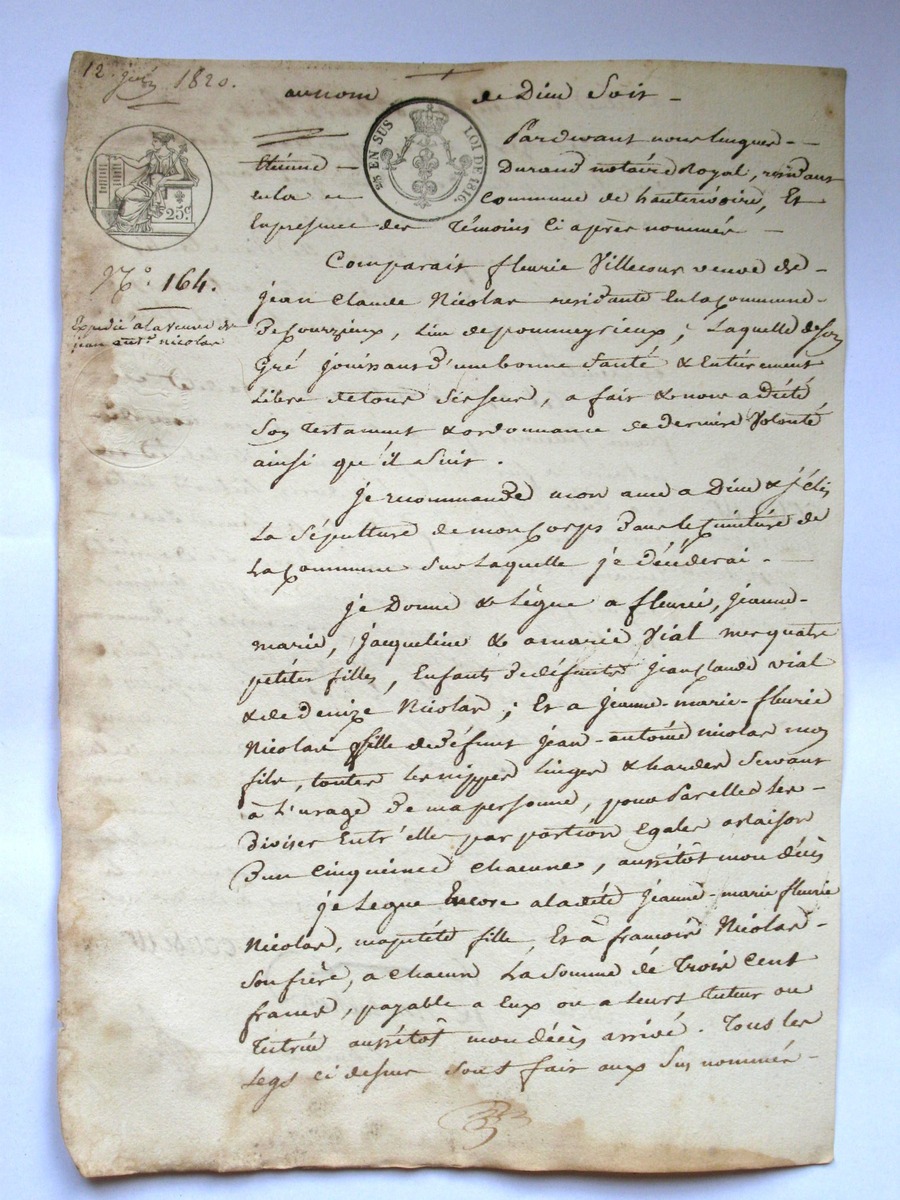 12 juin 1820.
au nom de Dieu Soit -
EN SUS LOI DE 1816.
25c
Pardevant nous hugues -
Etienne - Durand notaire Royal, residant
en la commune de hauterivoire, Et
En presence des Témoins ci après nommés -
N.o 164.
Expedié a la veuve de
jean ant.e nicolas
Comparait fleurie Villecour veuve de -
jean Claude Nicolas residante En la Commune -
De Courzieux, lieu de pommeyrieux ; Laquelle de Son
Gré jouissant D'une bonne Santé & Entièrement
Libre de tous Ses Sens, a fait & nous a dicté
Son Testament & ordonnance de derniere Volonté
ainsi qu'il Suit.
je recommande mon ame a Dieu & j'élis
La Sépulture de mon Corps Dans le Cimitière de
La Commune Sur Laquelle je décéderai. -
je Donne & Lègue a fleurie, jeanne -
marie, jacqueline & a marie Vial mes quatre
petites filles, Enfants De défunts jean Claude vial
& de denize Nicolas ; Et a jeanne - marie - fleurie
Nicolas fille de défunt jean - antoine nicolas mon
fils, toutes les nippes linges & hardes Servant
à L'usage De ma personne, pour Par elles Les -
Diviser Entr'elles par portion Egales a raison
D'un Cinquième Chacune, aussitôt mon décès
je Legue Encore a la dite jeanne - marie fleurie
Nicolas, ma petite fille, Et à francois Nicolas -
Son frère, a chacun La Somme de Trois Cent
francs, payable a Eux ou a Leurs tuteur ou
Tutrice aussitôt mon décès arrivé. Tous les
Legs ci dessus Sont fait aux Sus nommés -